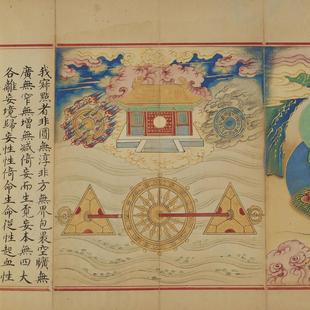 我寂黙者非圓無淳非方無界包裹空曠無
廣無窄無增無減倚妄而生覺妄本無四大
各離妄境歸妄性性倚命生命從性起血性